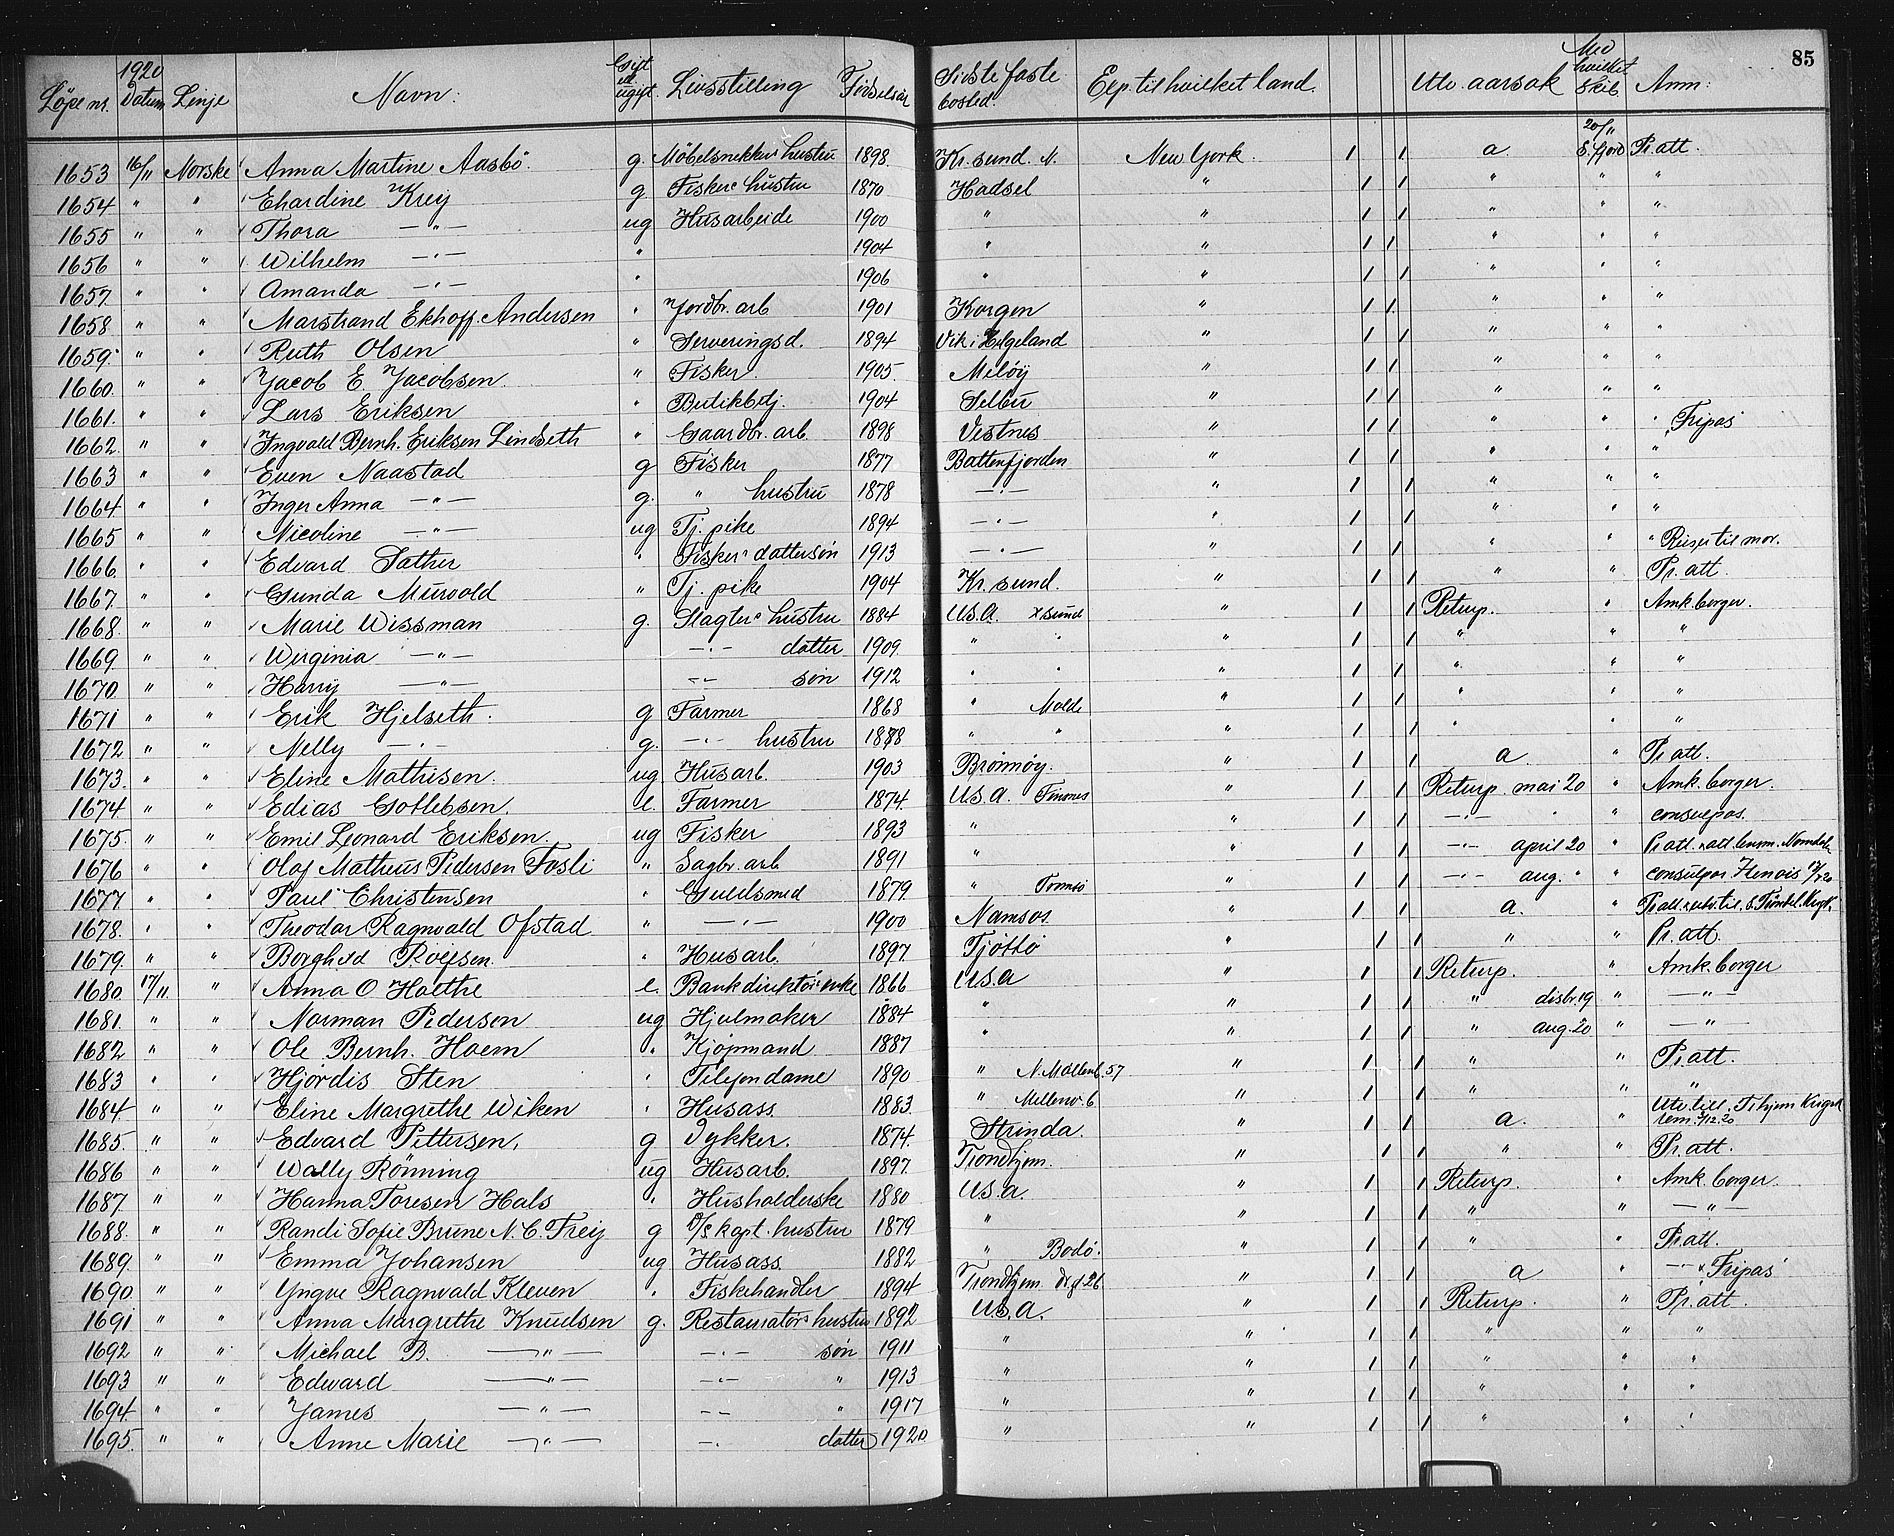 85
Løpe nr. 1920 Datum Linje Navn: Gift el. ugift. Livsstilling Fødselsaar Sidste faste bosted. Exp. til hvilket land. Utv. aarsak Med hvilket Skib. Anm:
1653 16/11 Norske Anna Martine Aasbö. g Møbelsnekkers hustru 1898. Kr. sund. N. New York. 1 1 a. 20/11 S. fjord Pr. att.
1654 " " Ehardine Krey g Fiskers hustru 1870 Hadsel " 1 1 " " "
1655 " " Thora —"— ug Husarbeide 1900 " " 1 1 " " "
1656 " " Wilhelm —"— " 1904 " " 1 1 " " "
1657. " " Amanda —"— " 1906 " " 1 1 " " "
1658 " " Marstrand Ekhoff. Andersen " Jordbr. arb 1901 Korgen " 1 1 " " "
1659. " " Ruth Olsen " Serveringsd. 1894 Vik i Helgeland " 1 1 " " "
1660. " " Jacob E. Jacobsen. " Fisker 1905. Meløy " 1 1 " " "
1661. " " Lars Eriksen " Butikbetj. 1904 Selbu " 1 1 " " "
1662. " " Ingvald Bernh. Eriksen Lindseth " Gaardbr. arb. 1898 Vestnes " 1 1 " " " Fripas
1663 " " Even Naastad g Fisker 1877 Battenfjorden " 1 1 " " "
1664 " " Inger Anna —"— g. " hustru 1878 —"— " 1 1 " " "
1665 " " Nicoline —"— ug Tj. pike 1894 —"— " 1 1 " " "
1666. " " Edvard Sather " Fiskers dattersøn 1913 —"— " 1 1 " " " Reiser til mor.
1667. " " Gunda Murvold " Tj. pike 1904 Kr. sund. " 1 1 " " Pr. att.
1668. " " Marie Wissman g. Slagters hustru 1884 U.S.A. Xsund " 1 1 Returp. " Amk. borger.
1669. " " Wirginia —"— —"— datter 1909. " " " 1 1 " " "
1670. " " Harry —"— —"— søn 1912 " " " 1 1 " " "
1671 " " Erik Hjelseth. g Farmer 1868 " Molde " 1 1 " " "
1672 " " Nelly —"— g. —"— hustru 1888 " " " 1 1 " " "
1673. " " Eline Mathisen. ug Husarb. 1903 Brønnøy. " 1 1 a. " Pr. att.
1674 " " Edias Gotlebsen. e. Farmer 1874. U.S.A. " 1 1 Returp. mai 20 " Amk. borger.
1675. " " Emil Leonard Eriksen. ug Fisker 1893 " " 1 1 —"— " " consulpas.
1676 " " Olaf Matheus Pedersen Fosli " Sagbr. arb. 1891 " " 1 1 —"— april 20 " Pr. att.
1677 " " Paul Christensen " Guldsmed 1879. " Tromsø " 1 1 —"— aug. " " consulpas
1678. " " Theodor Ragnvald Ofstad " —"— 1900 Namsos. " 1 1 a. " Pr. att.
1679. " " Borghild Roefsen. " Husarb. 1897. Tjøttø " 1 1 " " Pr. att.
1680. 17/11 " Anna O Hatthe e. Bankdirektørs enke 1866 U.S.a " 1 1 Returp. " Amk. borger
1681. " " Norman Pederson ug Hjulmaker 1884 " " 1 1 " disbr. 19 " —"—
1682 " " Ole Bernh. Hoem " Kjøpmand 1887 " " 1 1 " aug. 20 " —"—
1683 " " Hjördis Sten " Telefondame 1890 " N. Mollenb. 57 " 1 1 " " Pr. att.
1684 " " Eline Margrethe Wiken " Husass. 1883. " Mellemv. 6 " 1 1 " " "
1685. " " Edvard Pettersen, g Dykker. 1874. Strinda. " 1 1 a. " Utv. till. Trhjem Krigsk
1686 " " Wally Rönning ug Husarb. 1897. Trondhjem. " 1 1 " " Pr. att.
1687. " " Hanna Toresen Hals " Husholderske 1880 U.S.a. " 1 1 Returp. " Amk. borger.
1688. " " Randi Sofie Brune N. C. Frey g D/S kapt. hustru 1879 " " 1 1 " " —"—
1689. " " Emma Johansen ug Husass. 1882 " Bodö. " 1 1 " " Pr. att.
1690. " " Yngve Ragnvald Kleven " Fiskehandler 1894 Trondhjem " 1 1 a " —"— Fripas
1691 " " Anna Margrethe Knudsen g. Restauratørs hustru 1892 U.S.A. " 1 1 Returp. " Pr. att.
1692 " " Michael B. —"— —"— søn 1911 " " 1 1 " " "
1693 " " Edward —"— —"— " 1913 " " 1 1 " " "
1694. " " James —"— —"— " 1917 " " 1 1 " " "
1695. " " Anne Marie —"— —"— datter 1920 " " 1 1 " " "